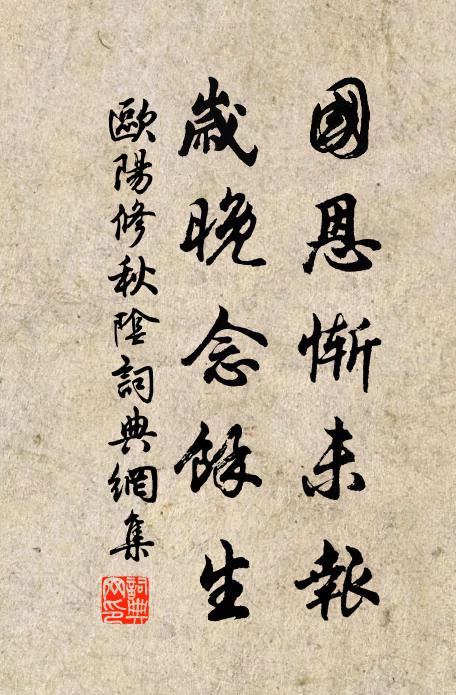 國恩慚未報
歲晚念餘生
歐陽修秋陰詞典網集
詞典
网印